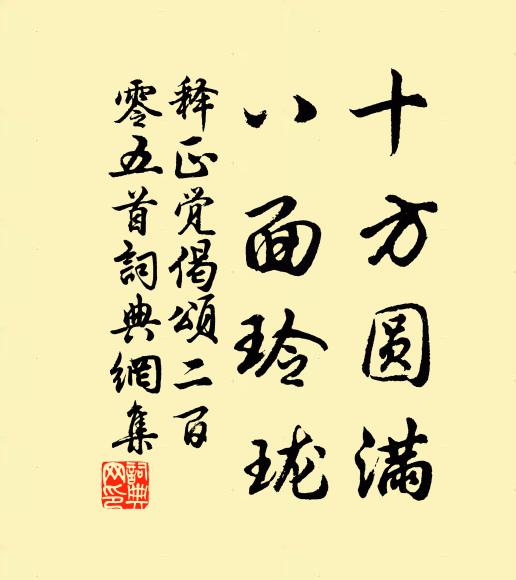 十方圆满
八面玲珑
释正觉偈颂二百
零五首詞典網集
詞典网印